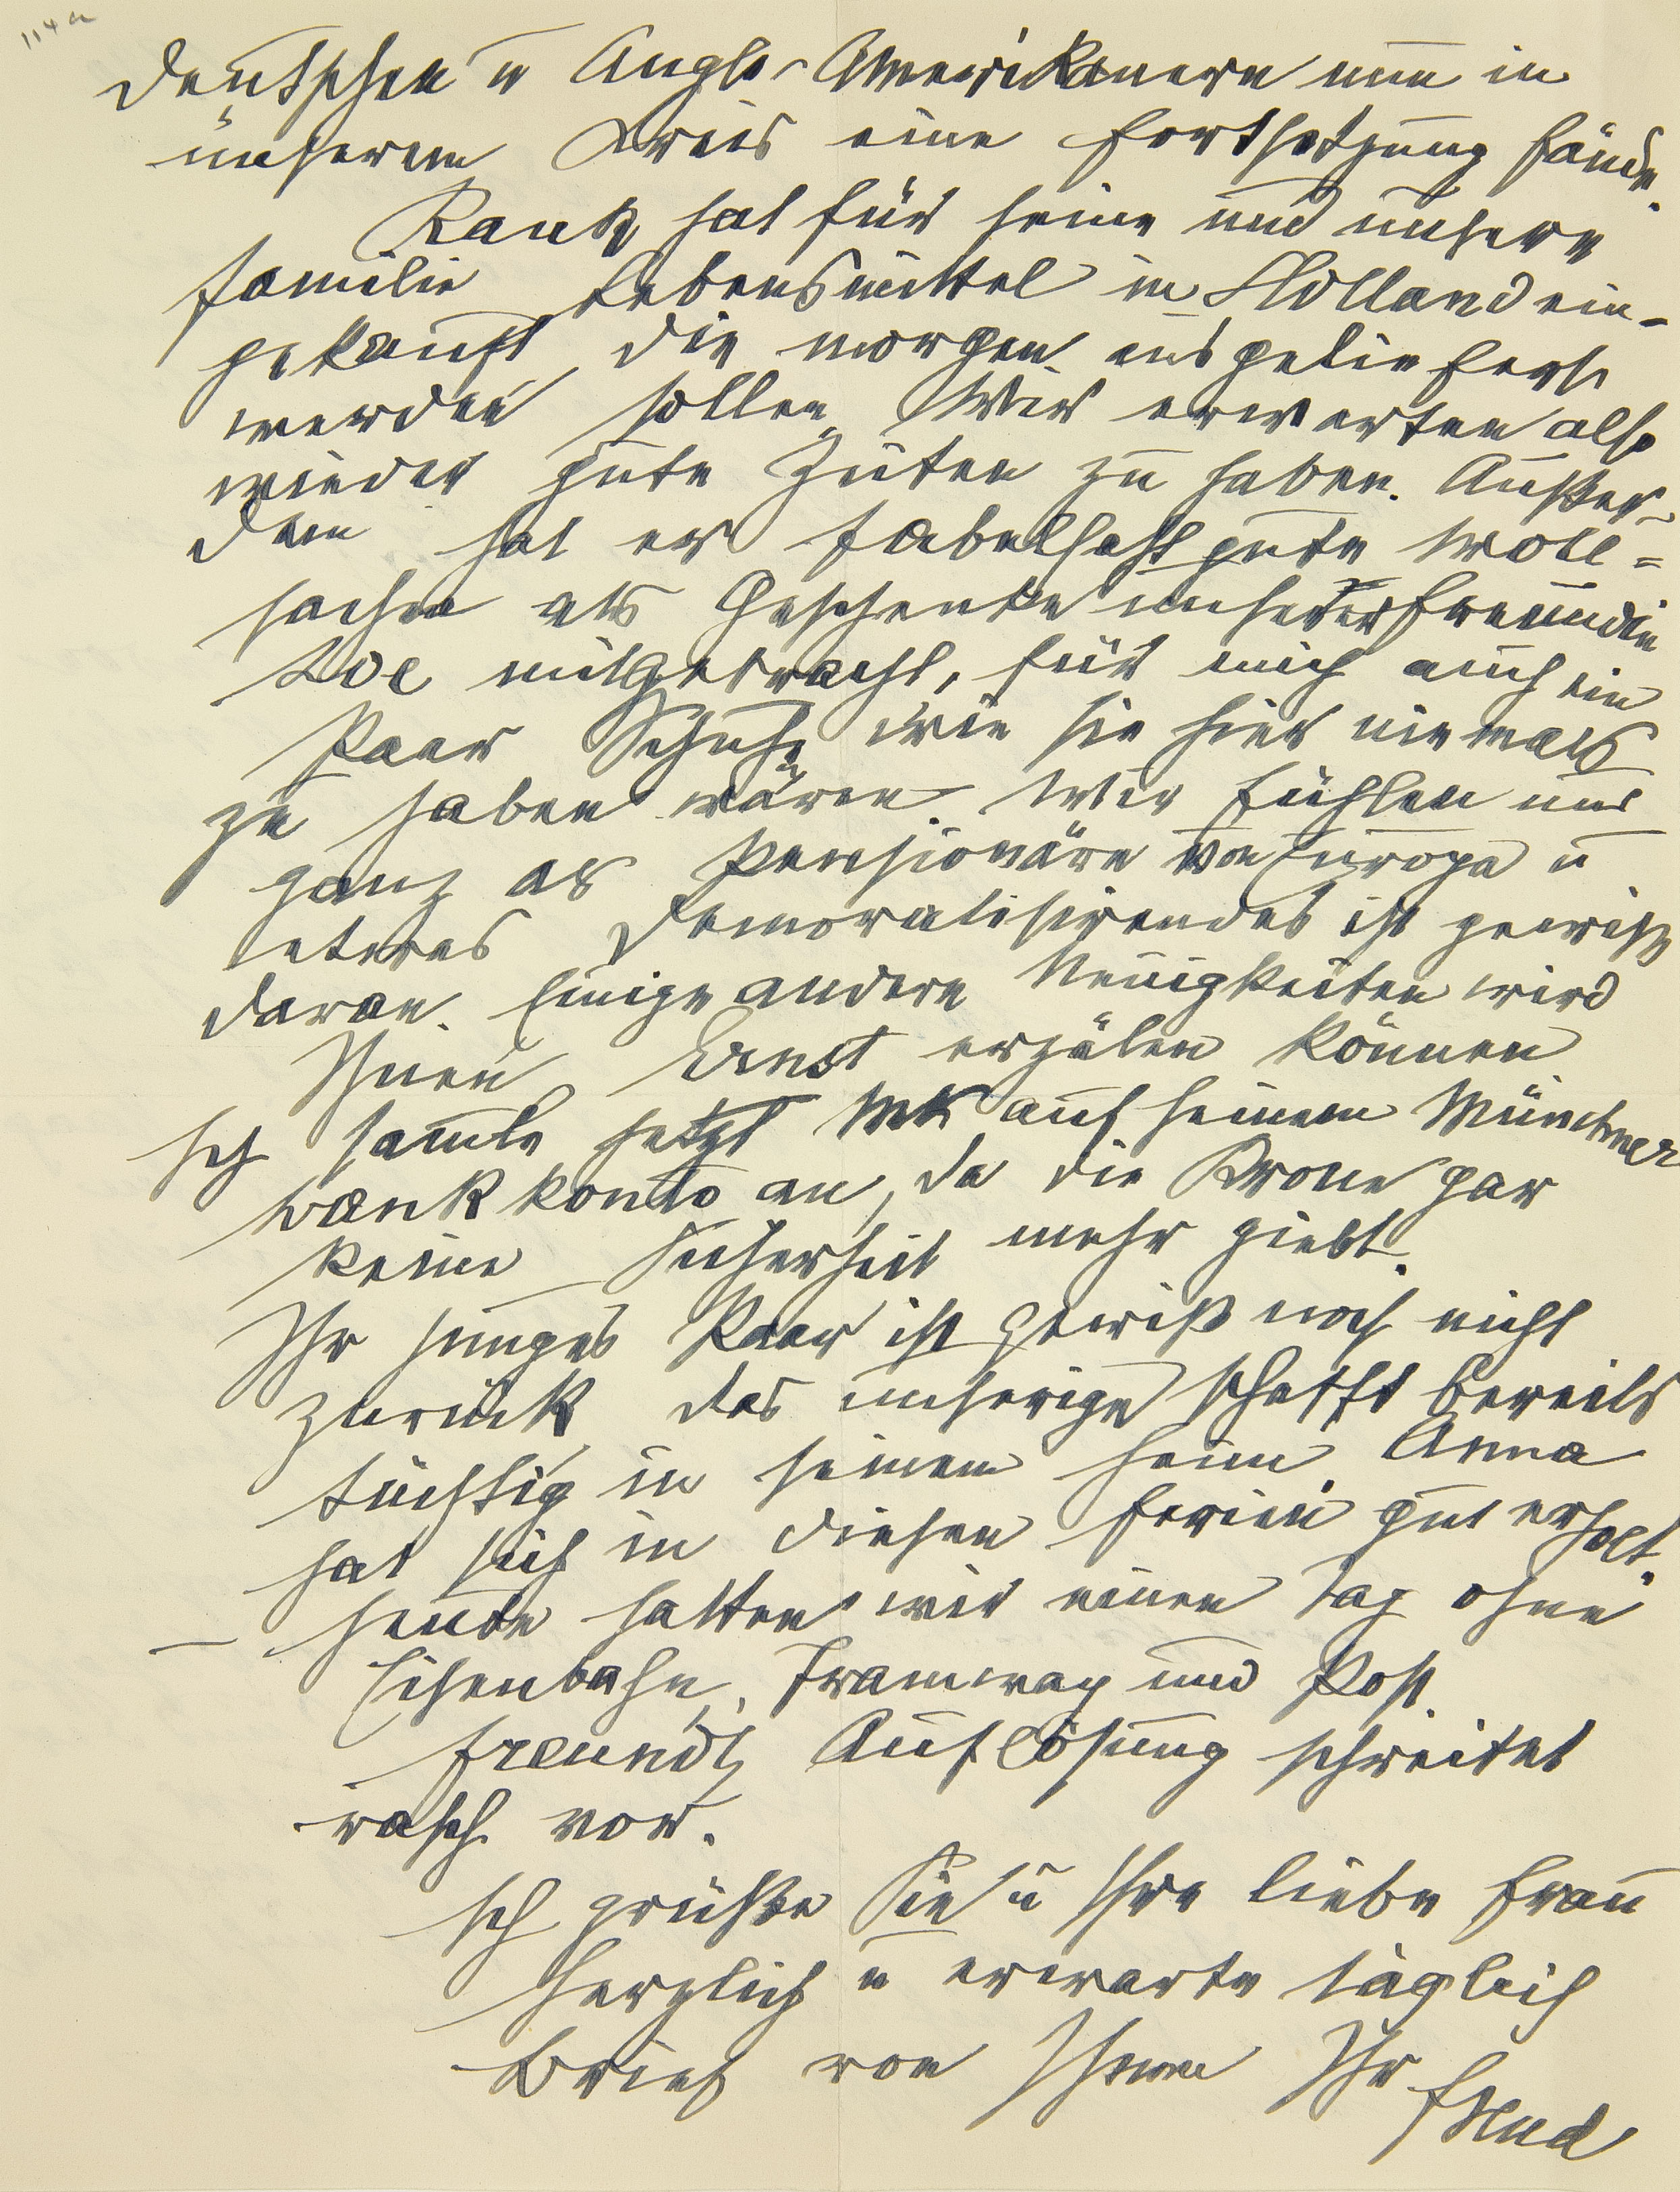 114a
Deutschen u Anglo-Amerikanern nun in
unserem Kreis eine Fortsetzung fände.
Rank hat für seine und unsere
Familie Lebensmittel in Holland ein-
gekauft, die morgen ausgeliefert
werden sollen. Wir erwarten also
wieder gute Zeiten zu haben. Außer-
dem hat er fabelhaft gute Woll=
sachen als Geschenke unserer Freundin
Loe mitgebracht, für mich auch ein
Paar Schuhe, wie sie hier niemals
zu haben wären. Wir fühlen uns
ganz als Pensionäre von Europa u
etwas Demoralisirendes ist gewiß
daran. Einige andere Neuigkeiten wird
Ihnen Ernst erzälen können.
Ich samle jetzt Mk auf seinem Münchner
Bankkonto an, da die Krone gar
keine Sicherheit mehr giebt.
Ihr junges Paar ist gewiß noch nicht
zurück, das unserige schafft bereits
tüchtig in seinem Heim. Anna
hat sich in diesen Ferien gut erholt.
– Heute hatten wir einen Tag ohne
Eisenbahn, Tramway und Post.
Freundl, Auflösung schreitet
rasch vor.
Ich grüße Sie u Ihre liebe Frau
herzlich u erwarte täglich
Brief von Ihnen Ihr
Freud